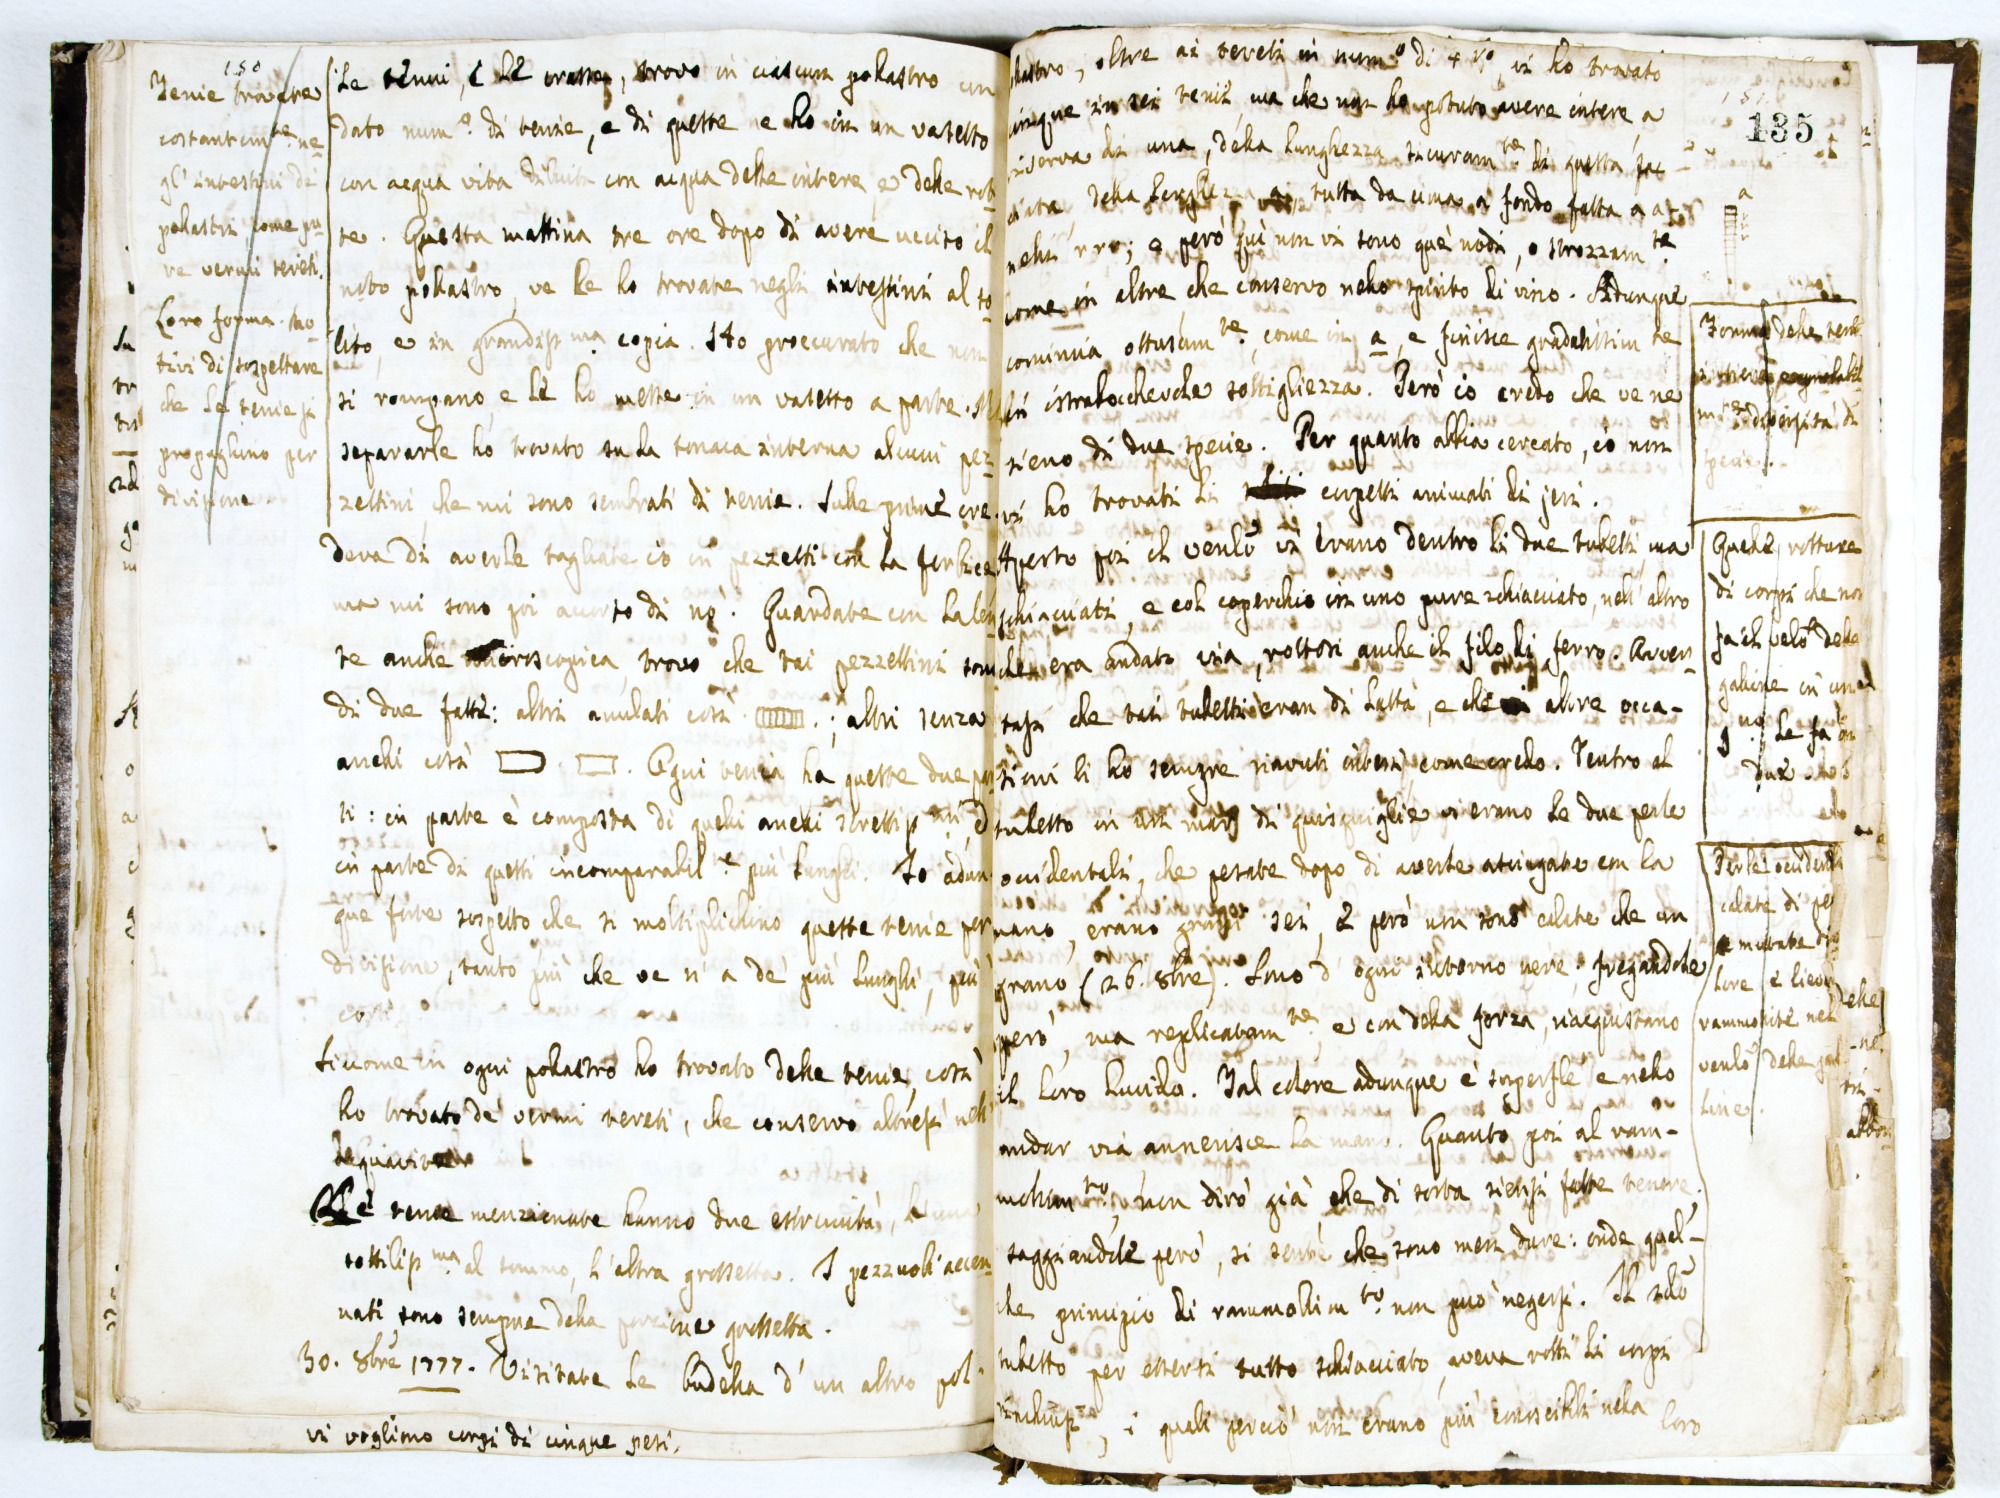 150
Tenie trovate
costantem.te ne
gl' intestini de'
pollastri, come pu
re vermi tereti.
Loro forma. Mo
tivi di sospettare
che le tenie si
propaghino per
divisione
le tenui, e le crasse, trovo in ciascun pollastro un
dato num.o di tenie, e di queste ne ho in un vasetto
con acqua vita diluita con acqua delle intere, e delle rot
te. Questa mattina tre ore dopo di avere ucciso il
solito pollastro, ve le ho trovate negli intestini al so
lito, e in grandiss.ma copia. Ho proccurato che non
si rompano e le ho messe in un vasetto a parte. Nel
separarle ho trovato su la tonaca interna alcuni pez
zettini, che mi sono sembrati di tenie. Sulle prime cre
deva di averle tagliate io in pezzetti con la forbice
ma mi sono poi accorto di no. Guardate con la len
te anche microscopica, trovo che tai pezzettini sono
di due fatte: altri anulati così ; altri senza
anelli così . Ogni tenia ha queste due par
ti: in parte è composta di quelli anelli strettiss.mi, e
in parte di questi incomparabil.te più lunghi. Io adun
que forte sospetto che si moltiplichino queste tenie per
divisione, tanto più che ve n' a de' più lunghi, più
corti.
Siccome in ogni pollastro ho trovato delle tenie, così
ho trovato de' vermi tereti, che conservo altresì nell'
acquavite
Le tenie menzionate hanno due estremità, l' una
sottiliss.ma al sommo, l' altra grossetta. I pezzuoli accen
nati sono sempre della porzione grossetta.
30. 8bre 1777. Visitate le budella d' un altro pol-
vi vogliono corpi di cinque pesi.
lastro, oltre ai tereti in num.o di 4 vi ho trovato
cinque in sei tenie, ma che non ho potuto avere intere a
riserva di una, della lunghezza sicuram.te di questa fac
ciata, della larghezza tutta da cima a fondo fatta a a
nelli ; e però qui non vi sono que' nodi, o strozzam.ti
come in altre, che conservo nello spirito di vino. Adunque
comincia ottusam.te, come in a, e finisce gradatissim.te
in istrabocchevole sottigliezza. Però io credo che ve ne
sieno di due specie. Per quanto abbia cercato, io non
vi ho trovati li corpetti animati di jeri.
Aperto poi il ventlo vi erano dentro li due tubetti ma
schiacciati, e col coperchio in uno pure schiacciato, nell' altro
che era andato via, rottosi anche il filo di ferro. Avver
tasi che tai tubetti eran di latta, e che in altre occa-
sioni li ho sempre riavuti interi, come credo. Dentro al
tubetto in un mar di quisquiglie vi erano le due perle
occidentali, che pesate dopo di averle asciugate con la
mano, erano grani sei, e però non sono calate che un
grano (26. 8bre). Sono d' ogni intorno nere; fregandole
però, ma replicatam.te e con della forza, riacquistano
il loro lucido. Tal colore adunque è superfle e nello
andar via annerisce la mano. Quanto poi al ram-
mollim.to, non dirò già che di sorta siensi fatte tenere,
saggiandole però, si sente che sono men dure: onde qual-
che principio di rammollim.to non può negarsi. Il solo
tubetto per essersi tutto schiacciato, aveva rotti li corpi
rinchiusi, i quali perciò non erano più conoscibili nella loro
151.
135
a
Forma delle tenie
diversità di
specie.
Quelle rotture
di corpi che non
fa il velo delle
galline in un
le fa in
due
Perle occidentali
calate di pe
mutate di co
lore e lieve
rammollite nel
ventlo delle gal
line.